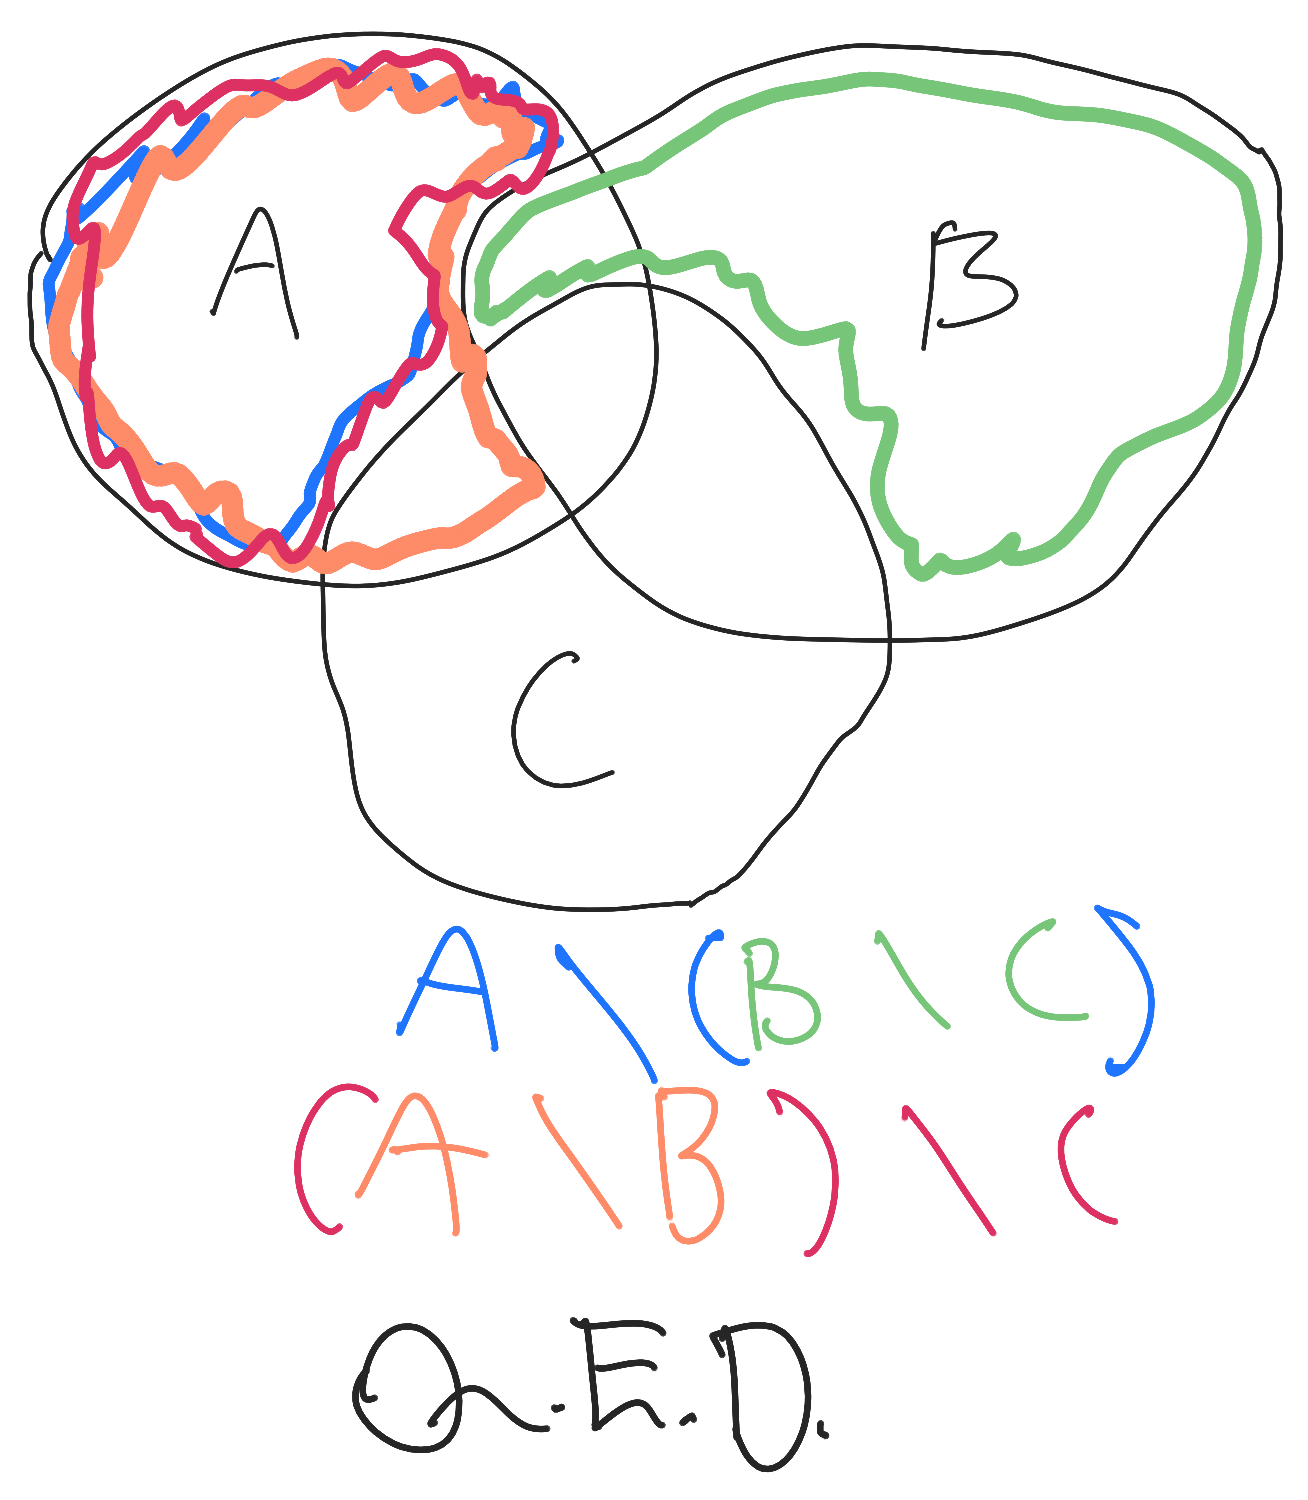 A
B
C
A \ (B \ C)
(A \ B) \ C
Q.E.D.